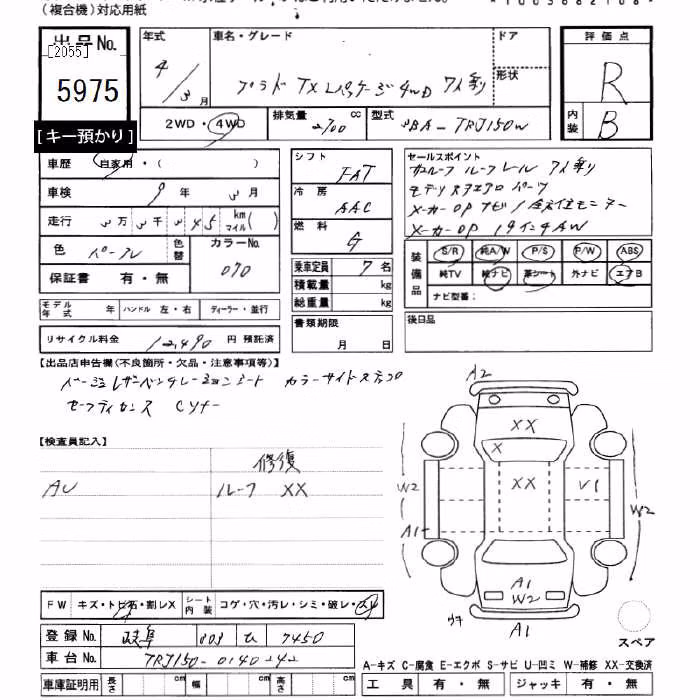 (複合機)対応用紙
出品No.
[2055]
5975
[キー預かり]
年式 4/3月
車名・グレード プラド TX Lパッケージ 4WD 7人乗り
ドア
形状
2WD・4WD
排気量 2700 cc
型式 3BA-TRJ150W
評価点 R
内装 B
車歴 自家用・( )
車検 9年 3月
走行 3万3千345km マイル( )
色 パール
色替
カラーNo. 070
保証書 有・無
シフト FAT
冷房 AAC
燃料 G
乗車定員 7名
積載量 kg
総重量 kg
セールスポイント
ルーフレール 7人乗り
モデリスタエアロパーツ
メーカーOPナビ/全方位モニター
メーカーOP 19インチAW
装備品 S/R 純A/W P/S P/W ABS
純TV 純ナビ 革シート 外ナビ エアB
ナビ型番:
モデル年式 年 ハンドル 左・右 ディーラー・並行
リサイクル料金 12,490 円 預託済
書類期限 月 日
後日品
【出品店申告欄(不良箇所・欠品・注意事項等)】
ベージュレザーベンチレーションシート カラーサイドステップ
セーフティセンス
【検査員記入】
修復
AU ルーフ XX
A2
XX
X
XX
V1
W2
A1
W2
A1
W2
A1
FW キズ・トビ石・割レX シート内装 コゲ・穴・汚レ・シミ・破レ・スレ
登録No. 岐阜 303 ひ 7450
車台No. TRJ150-0140242
車庫証明用 長さ cm 幅 cm 高さ cm
スペア
A-キズ C-腐食 E-エクボ S-サビ U-凹ミ W-補修 XX-交換済
工具 有・無 ジャッキ 有・無